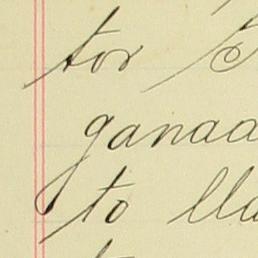 tor
ganaa
to lla